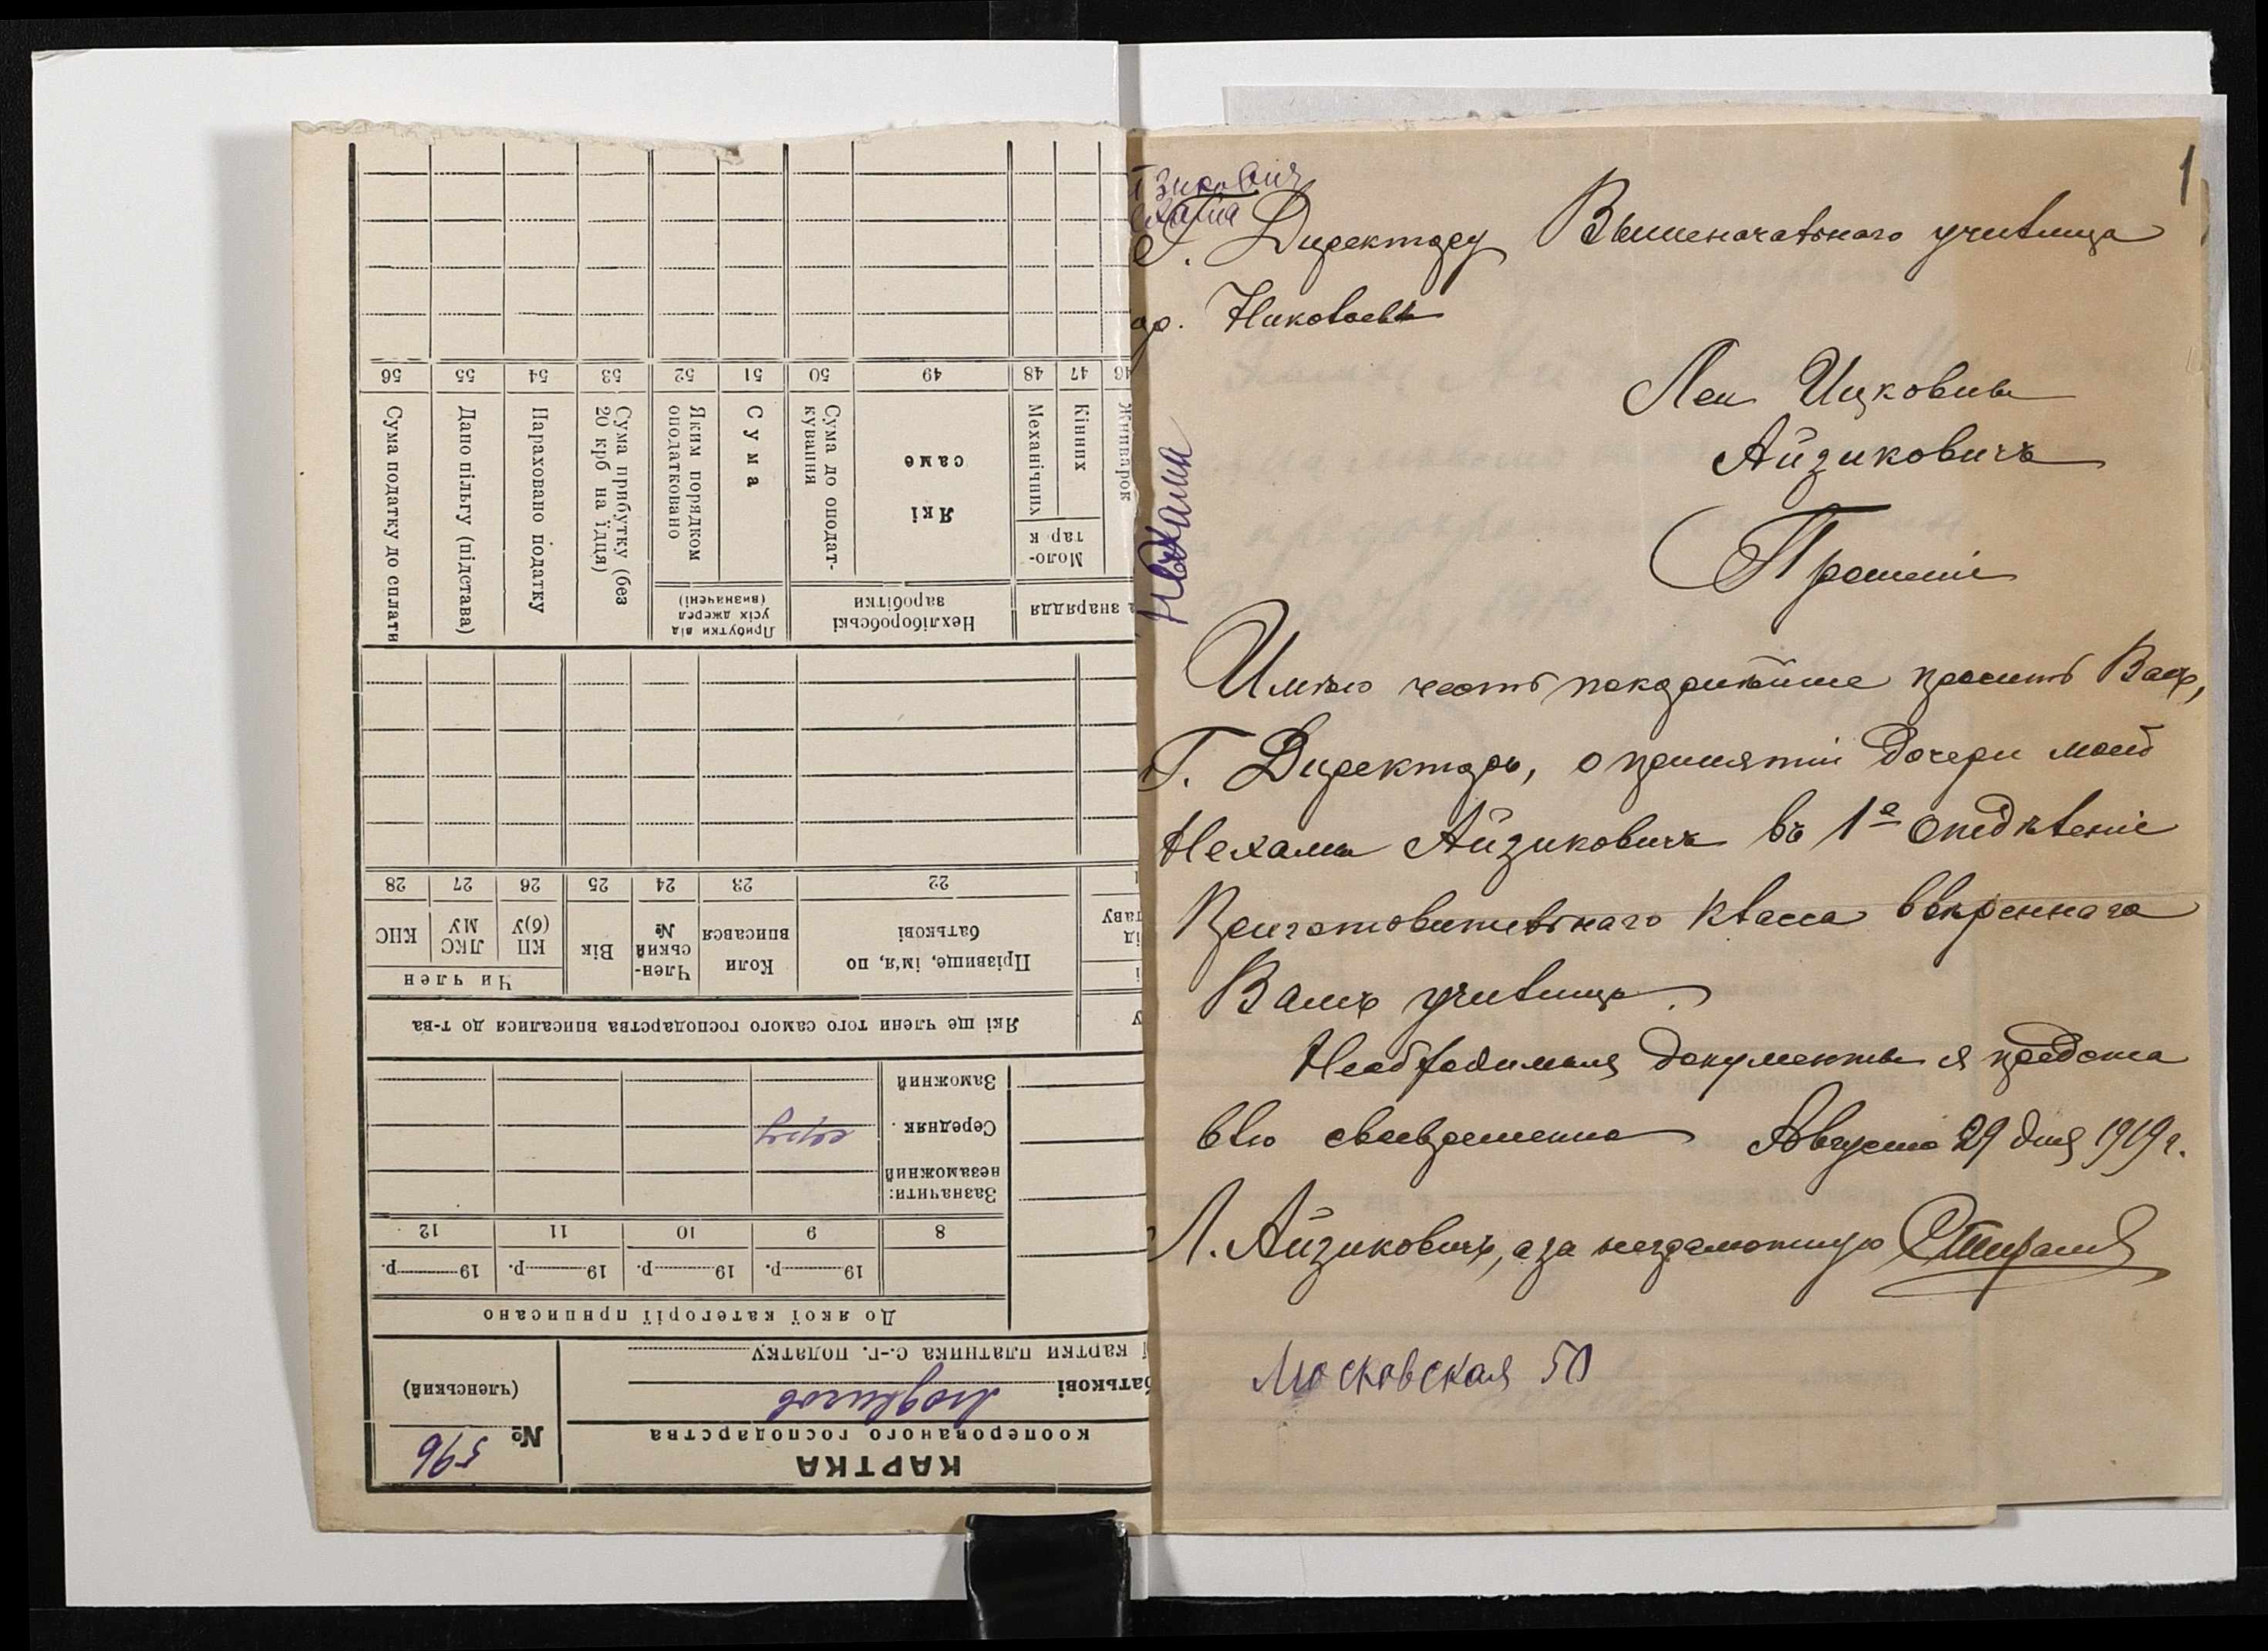 КАРТКА
кооперованого господарства
№ 596
(членський)
батькові
картки платника с.-г. податку
До якої категорії приписано
19 р. 19 р. 19 р. 19 р.
8 9 10 11 12
Зазначити:
незаможний
Середняк
Заможний
Які ще члени того самого господарства вписалися до т-ва
Прізвище, ім'я, по батькові
Коли вписався
Член-ський №
Вік
Чи член
КП (б)У
ЛКС МУ
КНС
22 23 24 25 26 27 28
знаряддя
Нехліборобські заробітки
Прибутки від усіх джерел (визначені)
Жниварок
Моло-тарк
Кінних
Механічних
Які саме
Сума до оподат-кування
Сума
Яким порядком оподатковано
Сума прибутку (без 20 крб на їдця)
Нараховано податку
Дано пільгу (підстава)
Сума податку до сплати
46 47 48 49 50 51 52 53 54 55 56
1
Г. Директору Вышеначальнаго училища
гор. Николаевъ
Леи Ицковны
Айзиковичъ
Прошеніе
Нехама
Имѣю честь покорнѣйше просить Васъ,
Г. Директоръ, о принятіи дочери моей
Нехамы Айзиковичъ въ 1е отдѣленіе
Приготовительнаго класса ввѣреннаго
Вамъ училища.
Необходимыя документы я предста
влю своевременно Августа 29 дня 1919 г.
Л. Айзиковичъ, а за неграмотную
Московская 50